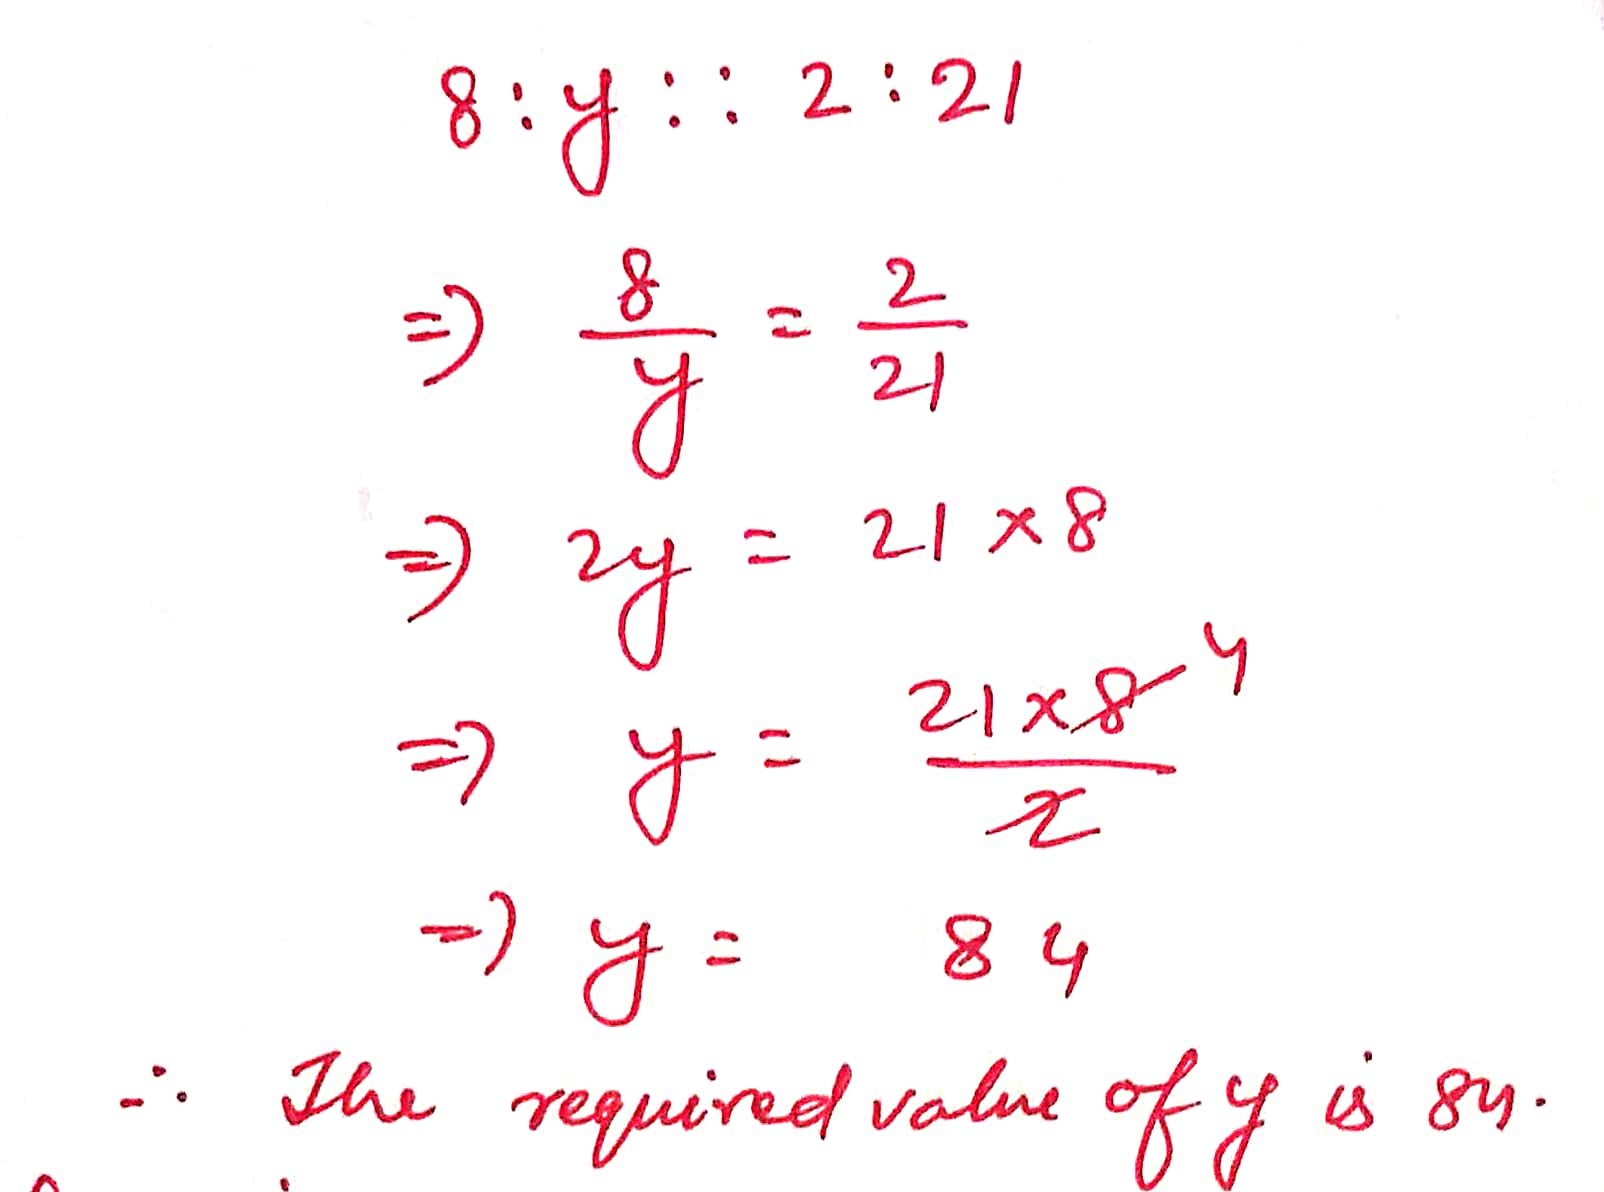 8 : y :: 2 : 21
=> 8/y = 2/21
=> 2y = 21 × 8
=> y = 21 × 8 4 / 2
=> y = 84
∴ The required value of y is 84.